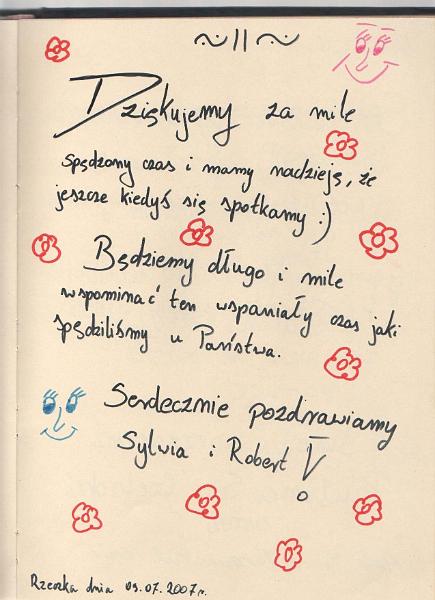 ~ || ~
Dziękujemy za mile
spędzony czas i mamy nadzieję, że
jeszcze kiedyś się spotkamy :)
Będziemy długo i mile
wspominać ten wspaniały czas jaki
spędziliśmy u Państwa.
Serdecznie pozdrawiamy
Sylwia i Robert!
Rzeczka dnia 09.07.2007r.